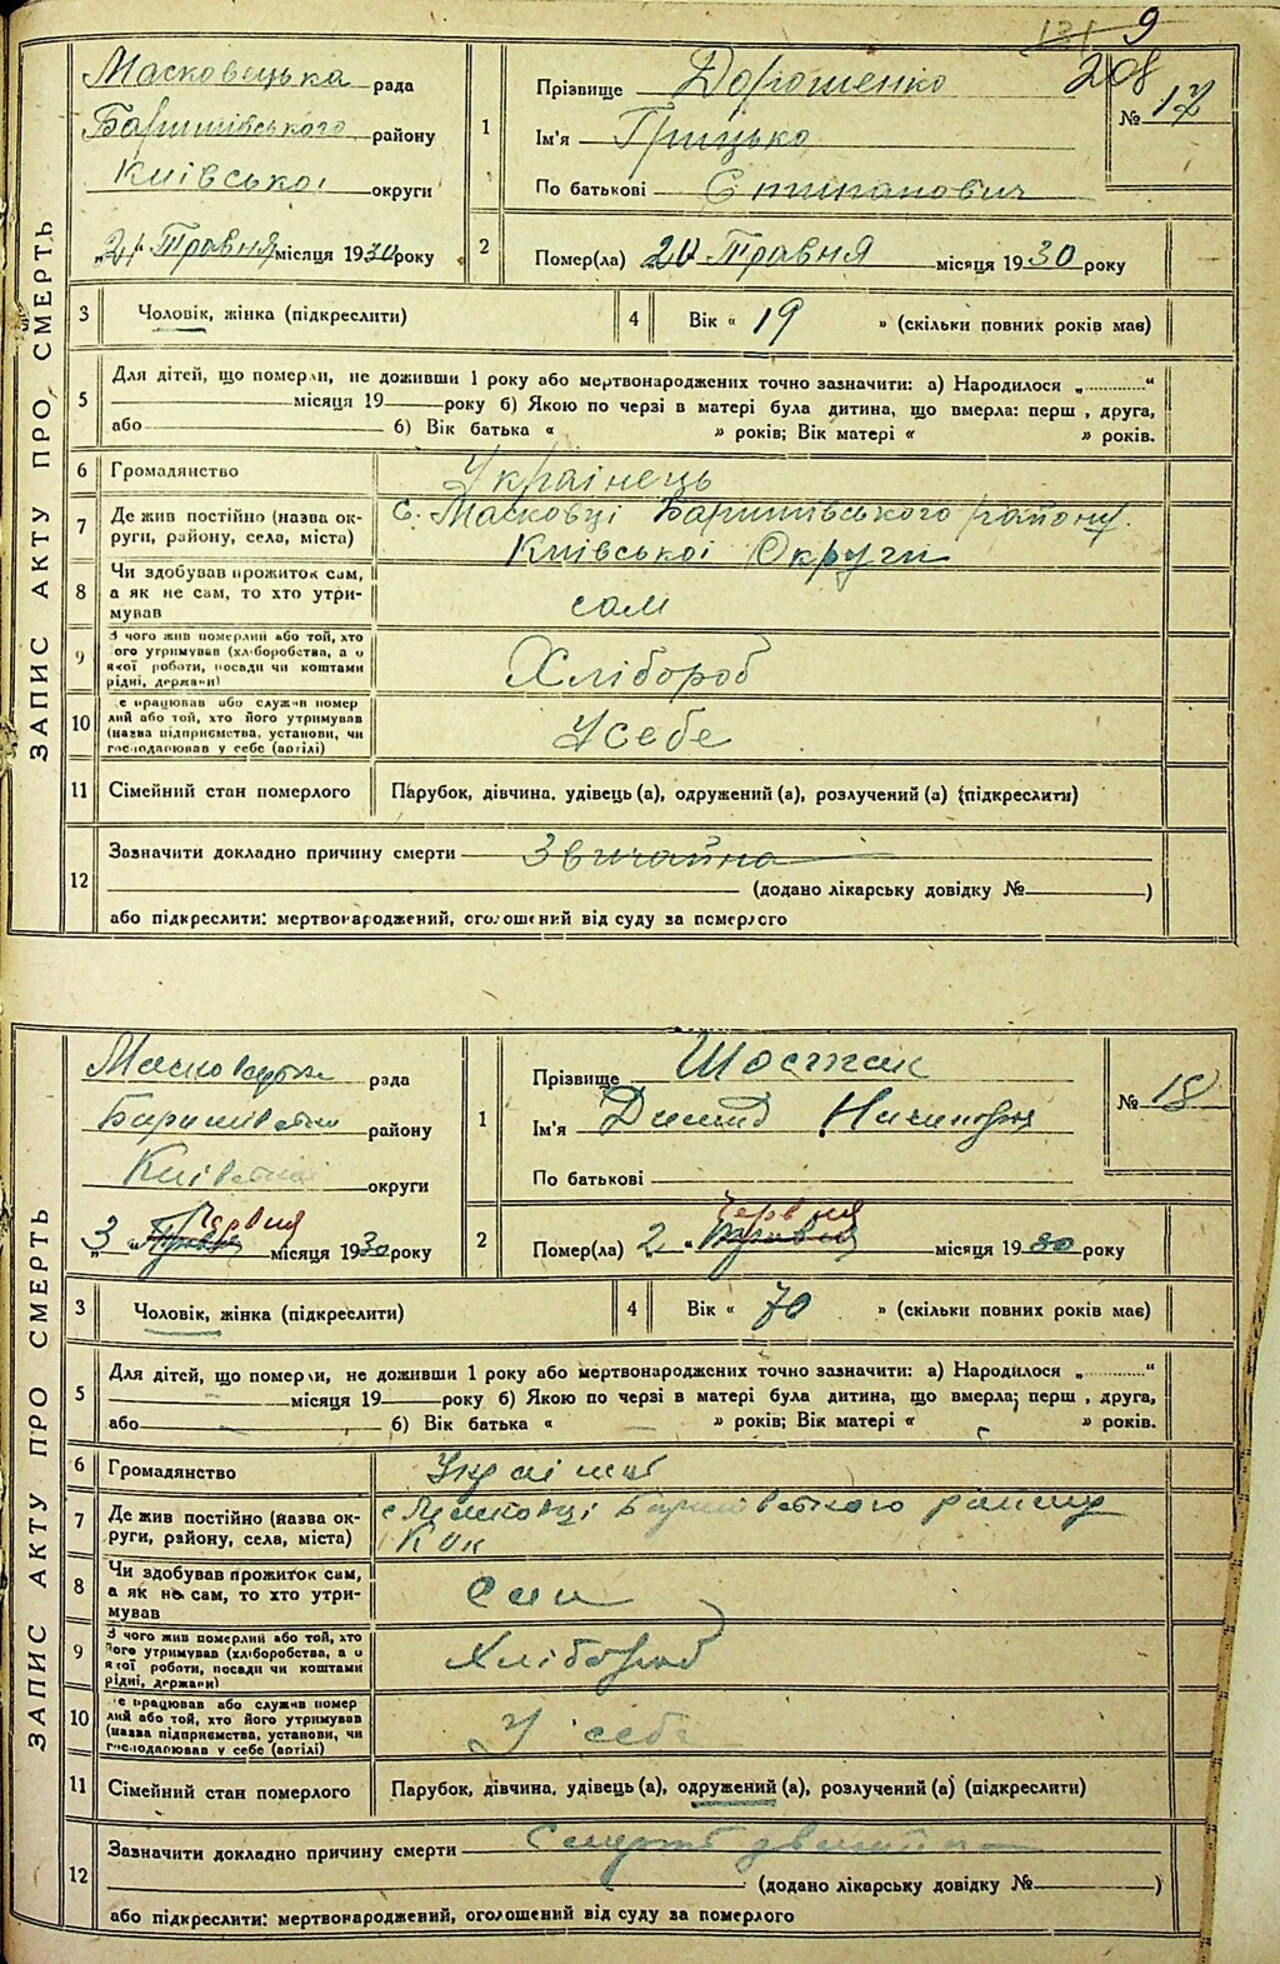 131 9
208
ЗАПИС АКТУ ПРО СМЕРТЬ
Масковецька рада
Баришівського району
Київської округи
„21" Травня місяця 1930 року
1
Прізвище Дорошенко
Ім'я Грицько
По батькові Степанович
№ 17
2
Помер(ла) 20 Травня місяця 1930 року
3 Чоловік, жінка (підкреслити)
4 Вік « 19 » (скільки повних років має)
5
Для дітей, що померли, не доживши 1 року або мертвонароджених точно зазначити: а) Народилося „..........."
місяця 19 року б) Якою по черзі в матері була дитина, що вмерла: перш , друга,
або б) Вік батька « » років; Вік матері « » років.
6 Громадянство Українець
7 Де жив постійно (назва ок-
руги, району, села, міста)
с. Масковці Баришівського району.
Київської Округи
8 Чи здобував прожиток сам,
а як не сам, то хто утри-
мував
сам
9 З чого жив померлий або той, хто
ого утримував (хліборобства, а о
якої роботи, посади чи коштами
рідні, держави)
Хлібороб
10 е працював або служив помер
лий або той, хто його утримував
(назва підприємства, установи, чи
господарював у себе (артілі)
У себе
11 Сімейний стан померлого Парубок, дівчина, удівець (а), одружений (а), розлучений (а) (підкреслити)
12
Зазначити докладно причину смерти Звичайна
(додано лікарську довідку № )
або підкреслити: мертвонароджений, оголошений від суду за померлого
ЗАПИС АКТУ ПРО СМЕРТЬ
рада
району
округи
Червня
„3" Травня місяця 1930 року
1
Прізвище Шостак
Ім'я
По батькові
№ 18
2
Червня
Помер(ла) 2 " Травня місяця 1930 року
3 Чоловік, жінка (підкреслити)
4 Вік « 70 » (скільки повних років має)
5
Для дітей, що померли, не доживши 1 року або мертвонароджених точно зазначити: а) Народилося „..........."
місяця 19 року б) Якою по черзі в матері була дитина, що вмерла; перш , друга,
або б) Вік батька « » років; Вік матері « » років.
6 Громадянство
7 Де жив постійно (назва ок-
руги, району, села, міста)
с Масковці Баришівського району
К ок
8 Чи здобував прожиток сам,
а як не сам, то хто утри-
мував
Сам
9 З чого жив померлий або той, хто
його утримував (хліборобства, а о
якої роботи, посади чи коштами
рідні, держави)
Хлібороб
10 е працював або служив помер
лий або той, хто його утримував
(назва підприємства, установи, чи
господарював у себе (артілі)
У себе
11 Сімейний стан померлого Парубок, дівчина, удівець (а), одружений (а), розлучений (а) (підкреслити)
12
Зазначити докладно причину смерти Смерть звичайна
(додано лікарську довідку № )
або підкреслити: мертвонароджений, оголошений від суду за померлого